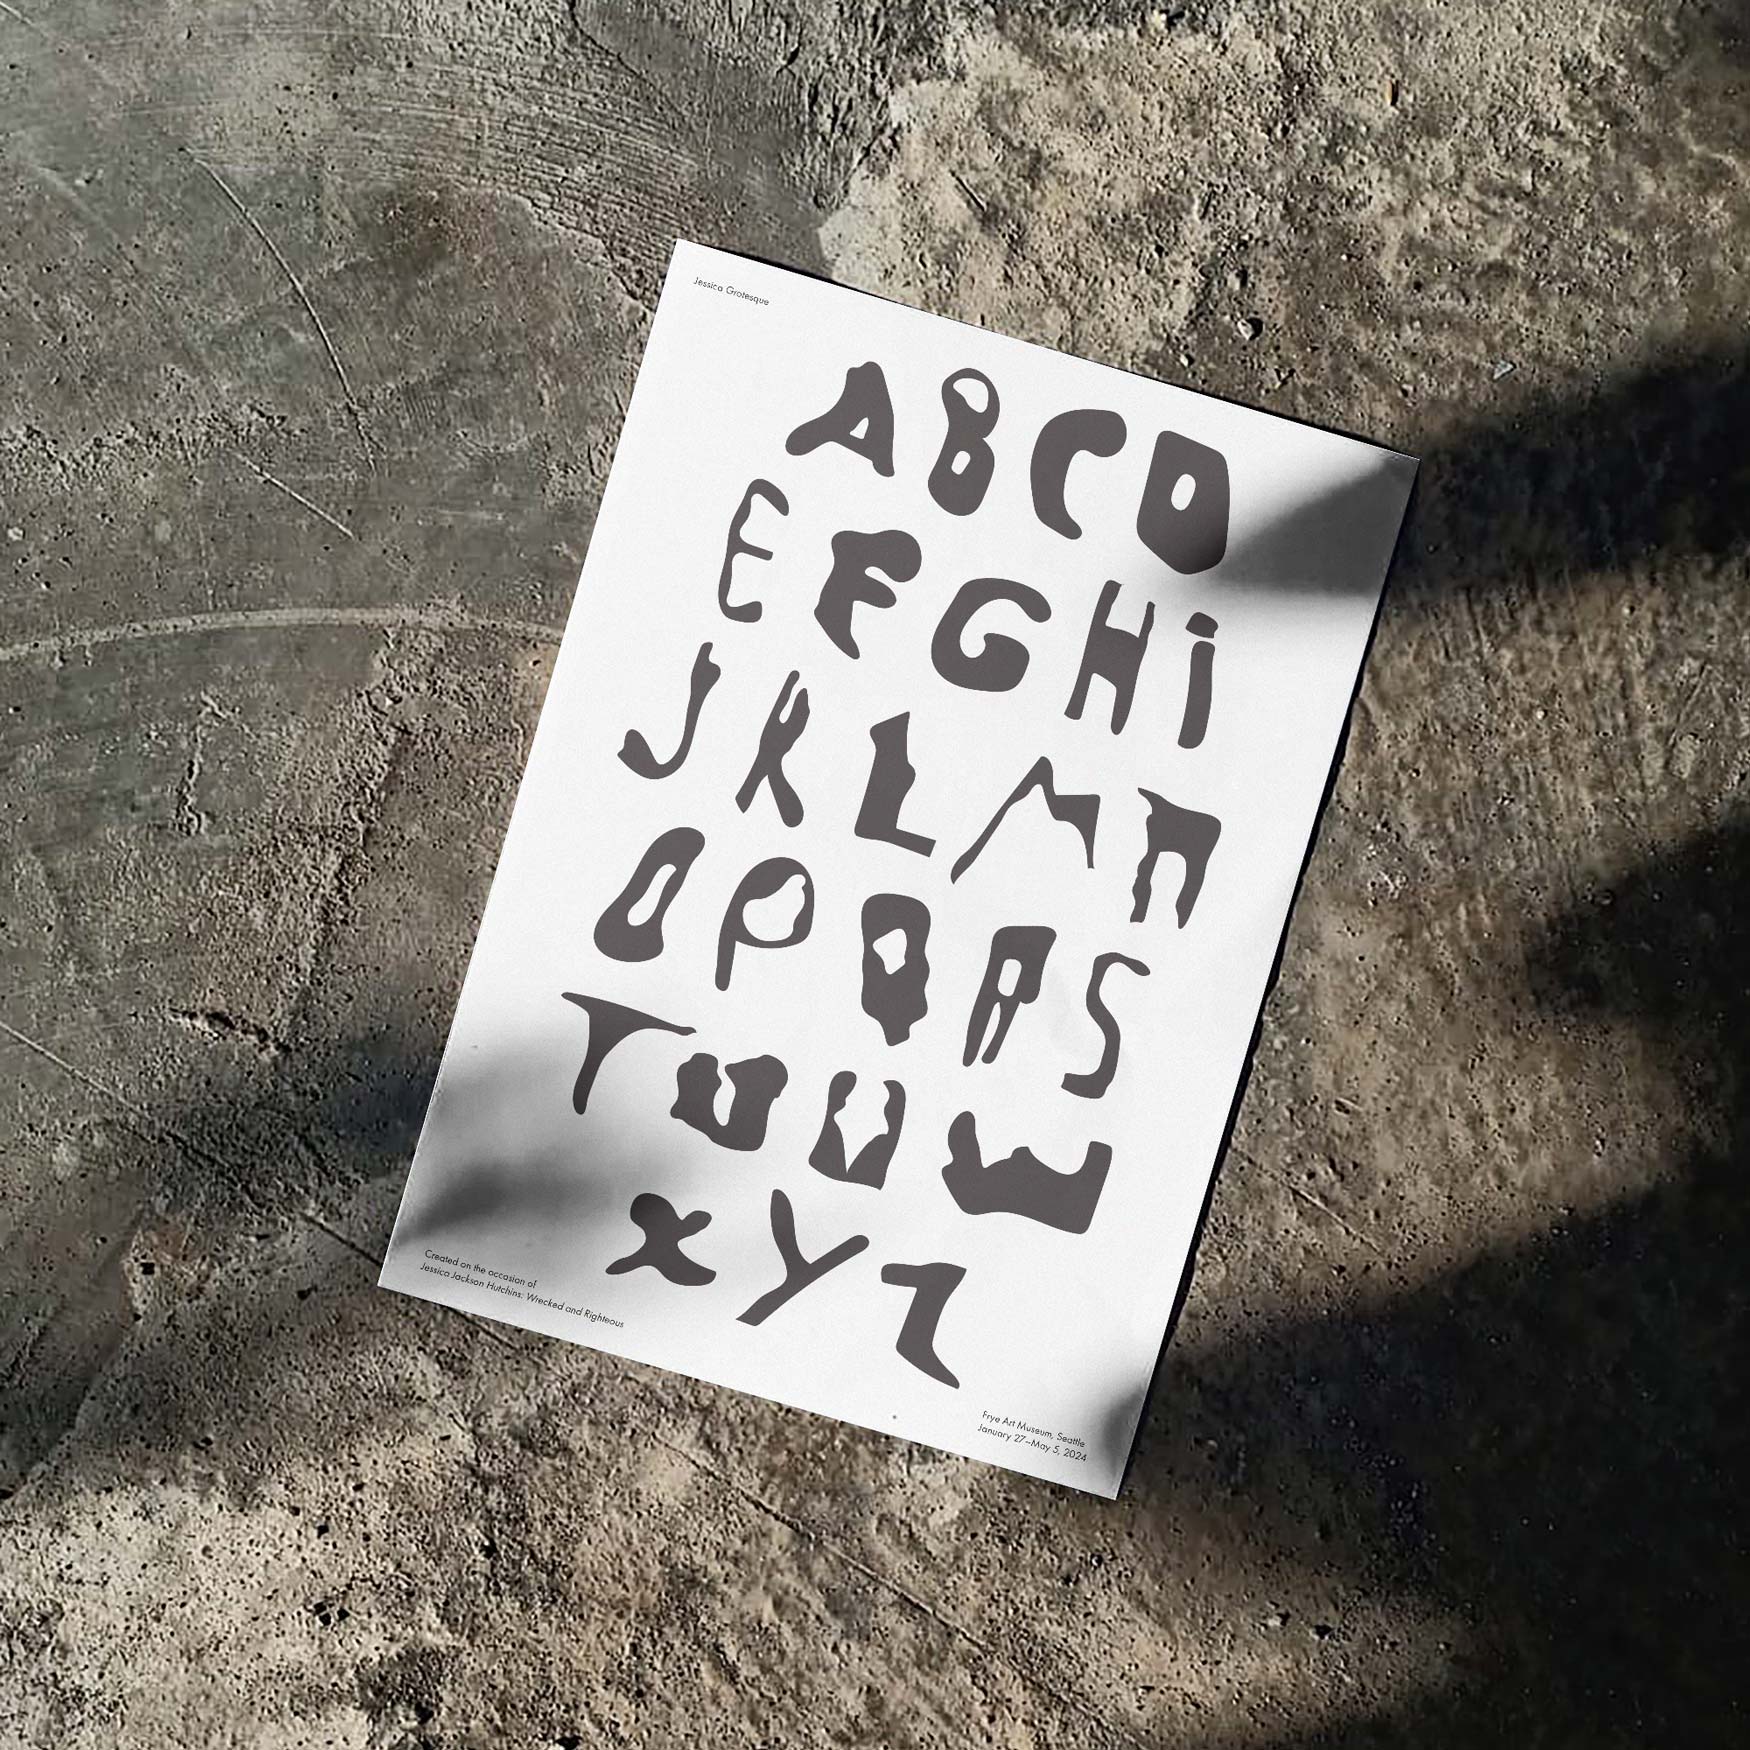 Jessica Grotesque
A B C D
E F G H i
J K L M n
O P Q R S
T U V W
X Y Z
Created on the occasion of
Jessica Jackson Hutchins: Wrecked and Righteous
Frye Art Museum, Seattle
January 27–May 5, 2024